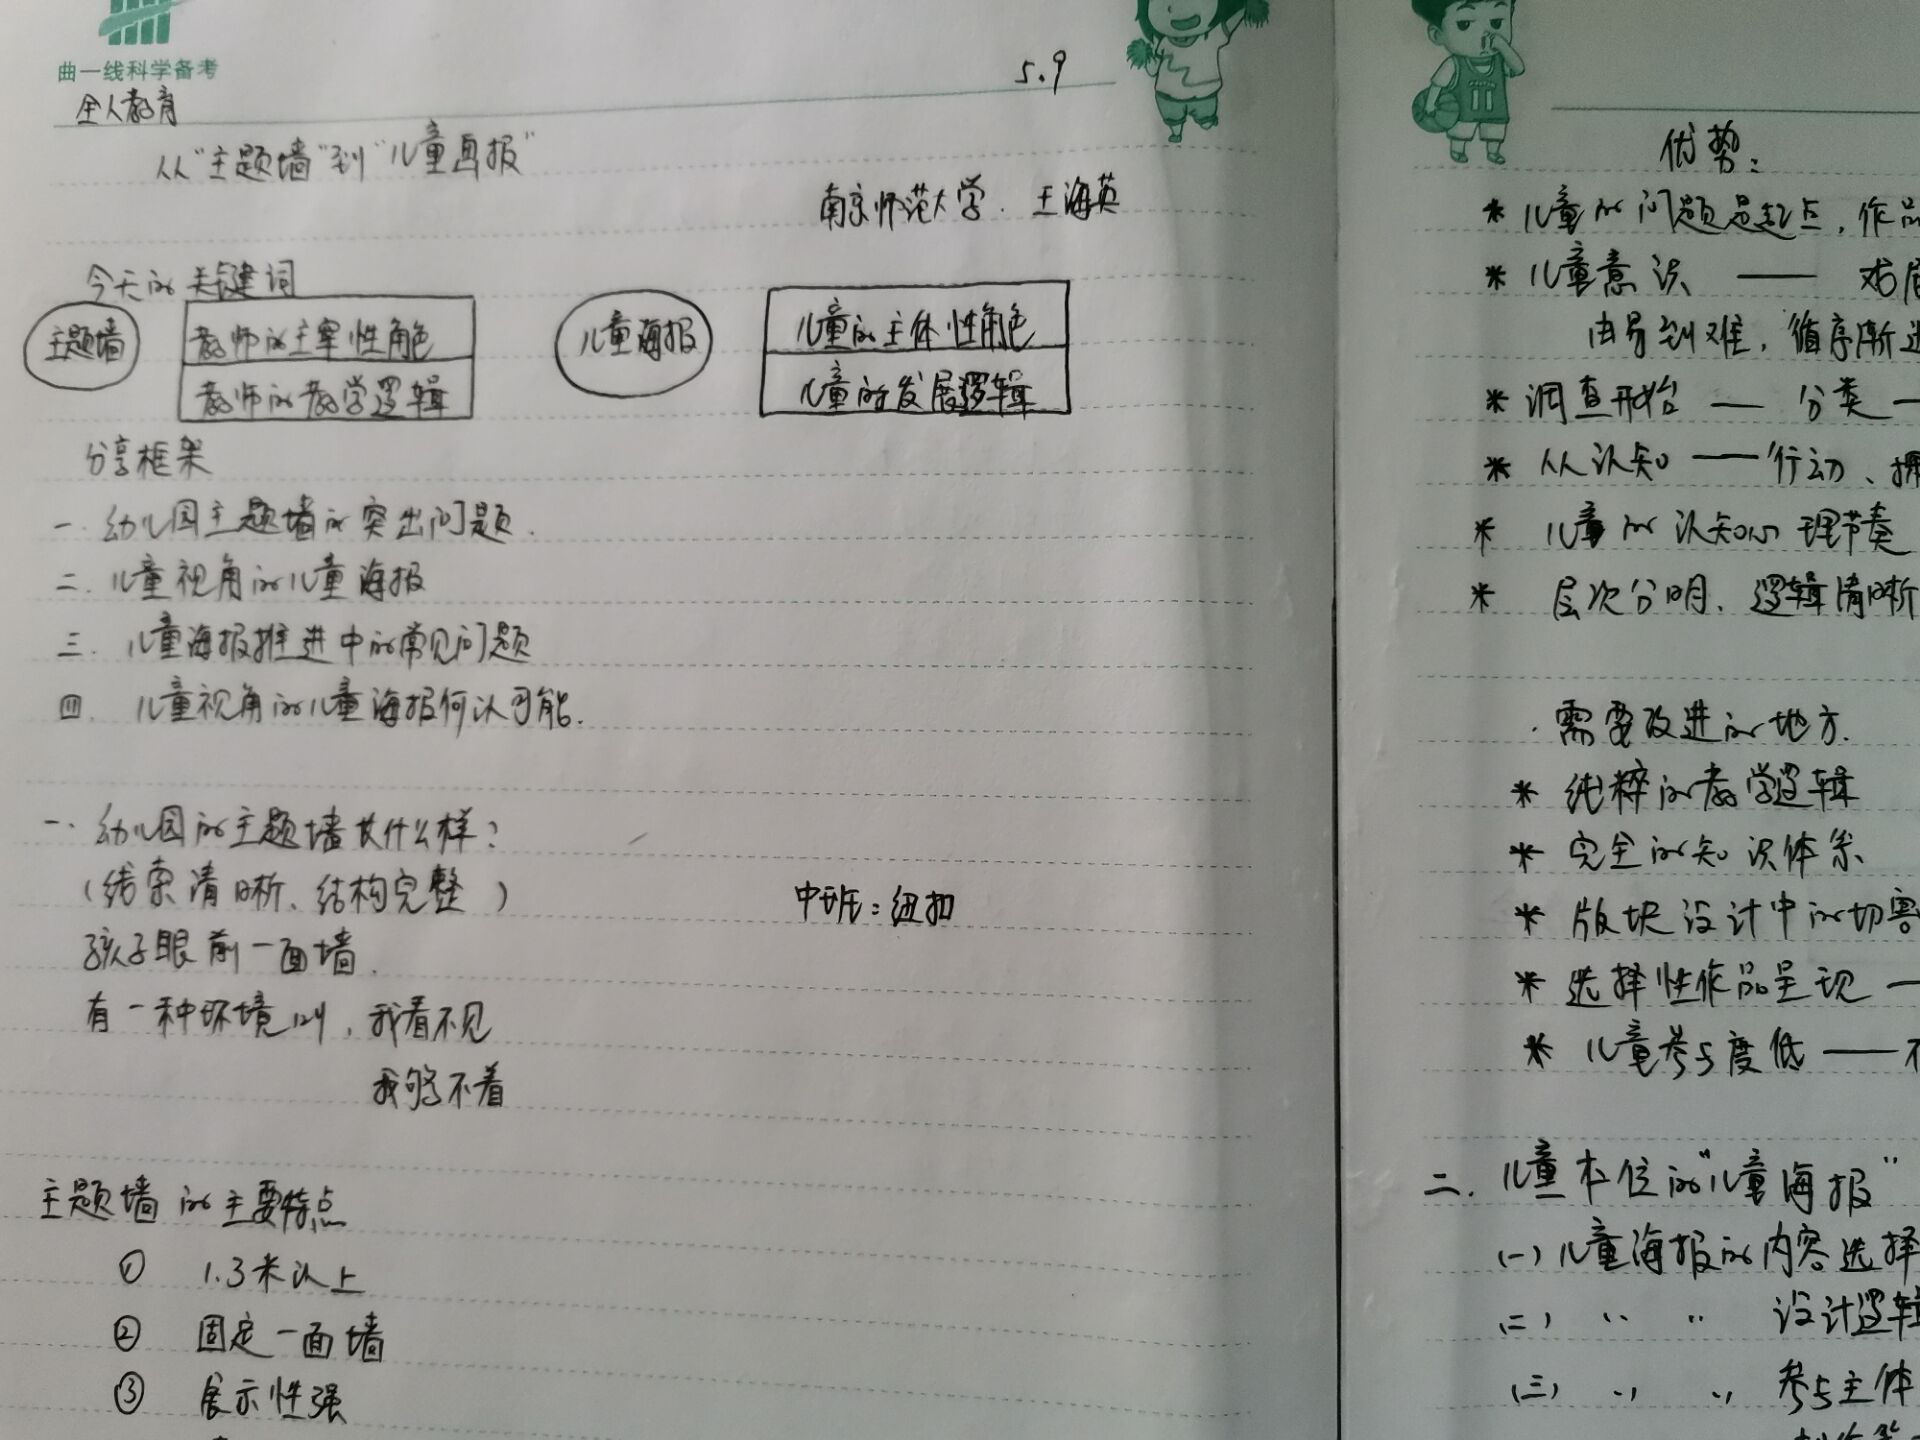 曲一线科学备考
5.9
全人教育
从"主题墙"到"儿童画报"
南京师范大学. 王海英
今天的关键词
主题墙
教师的主宰性角色
教师的教学逻辑
儿童海报
儿童的主体性角色
儿童的发展逻辑
分享框架
一. 幼儿园主题墙的突出问题.
二. 儿童视角的儿童海报
三. 儿童海报推进中的常见问题
四. 儿童视角的儿童海报何以可能.
一. 幼儿园的主题墙长什么样?
(线索清晰、结构完整)
中班:纽扣
孩子眼前一面墙.
有一种环境叫,我看不见
我够不着
主题墙的主要特点
① 1.3米以上
② 固定一面墙
③ 展示性强
优势:
* 儿童的问题是起点,作品
* 儿童意识 ——
由易到难,循序渐进
* 调查开始 — 分类 —
* 从认知 ——行动、
* 儿童的认知心理节奏
* 层次分明、逻辑清晰
. 需要改进的地方.
* 纯粹的教学逻辑
* 完全的知识体系
* 版块设计中的切割
* 选择性作品呈现 —
* 儿童参与度低 —— 不
二. 儿童本位的"儿童海报"
(一)儿童海报的内容选择
(二) 〃 〃 设计逻辑
(三) 〃 〃 参与主体